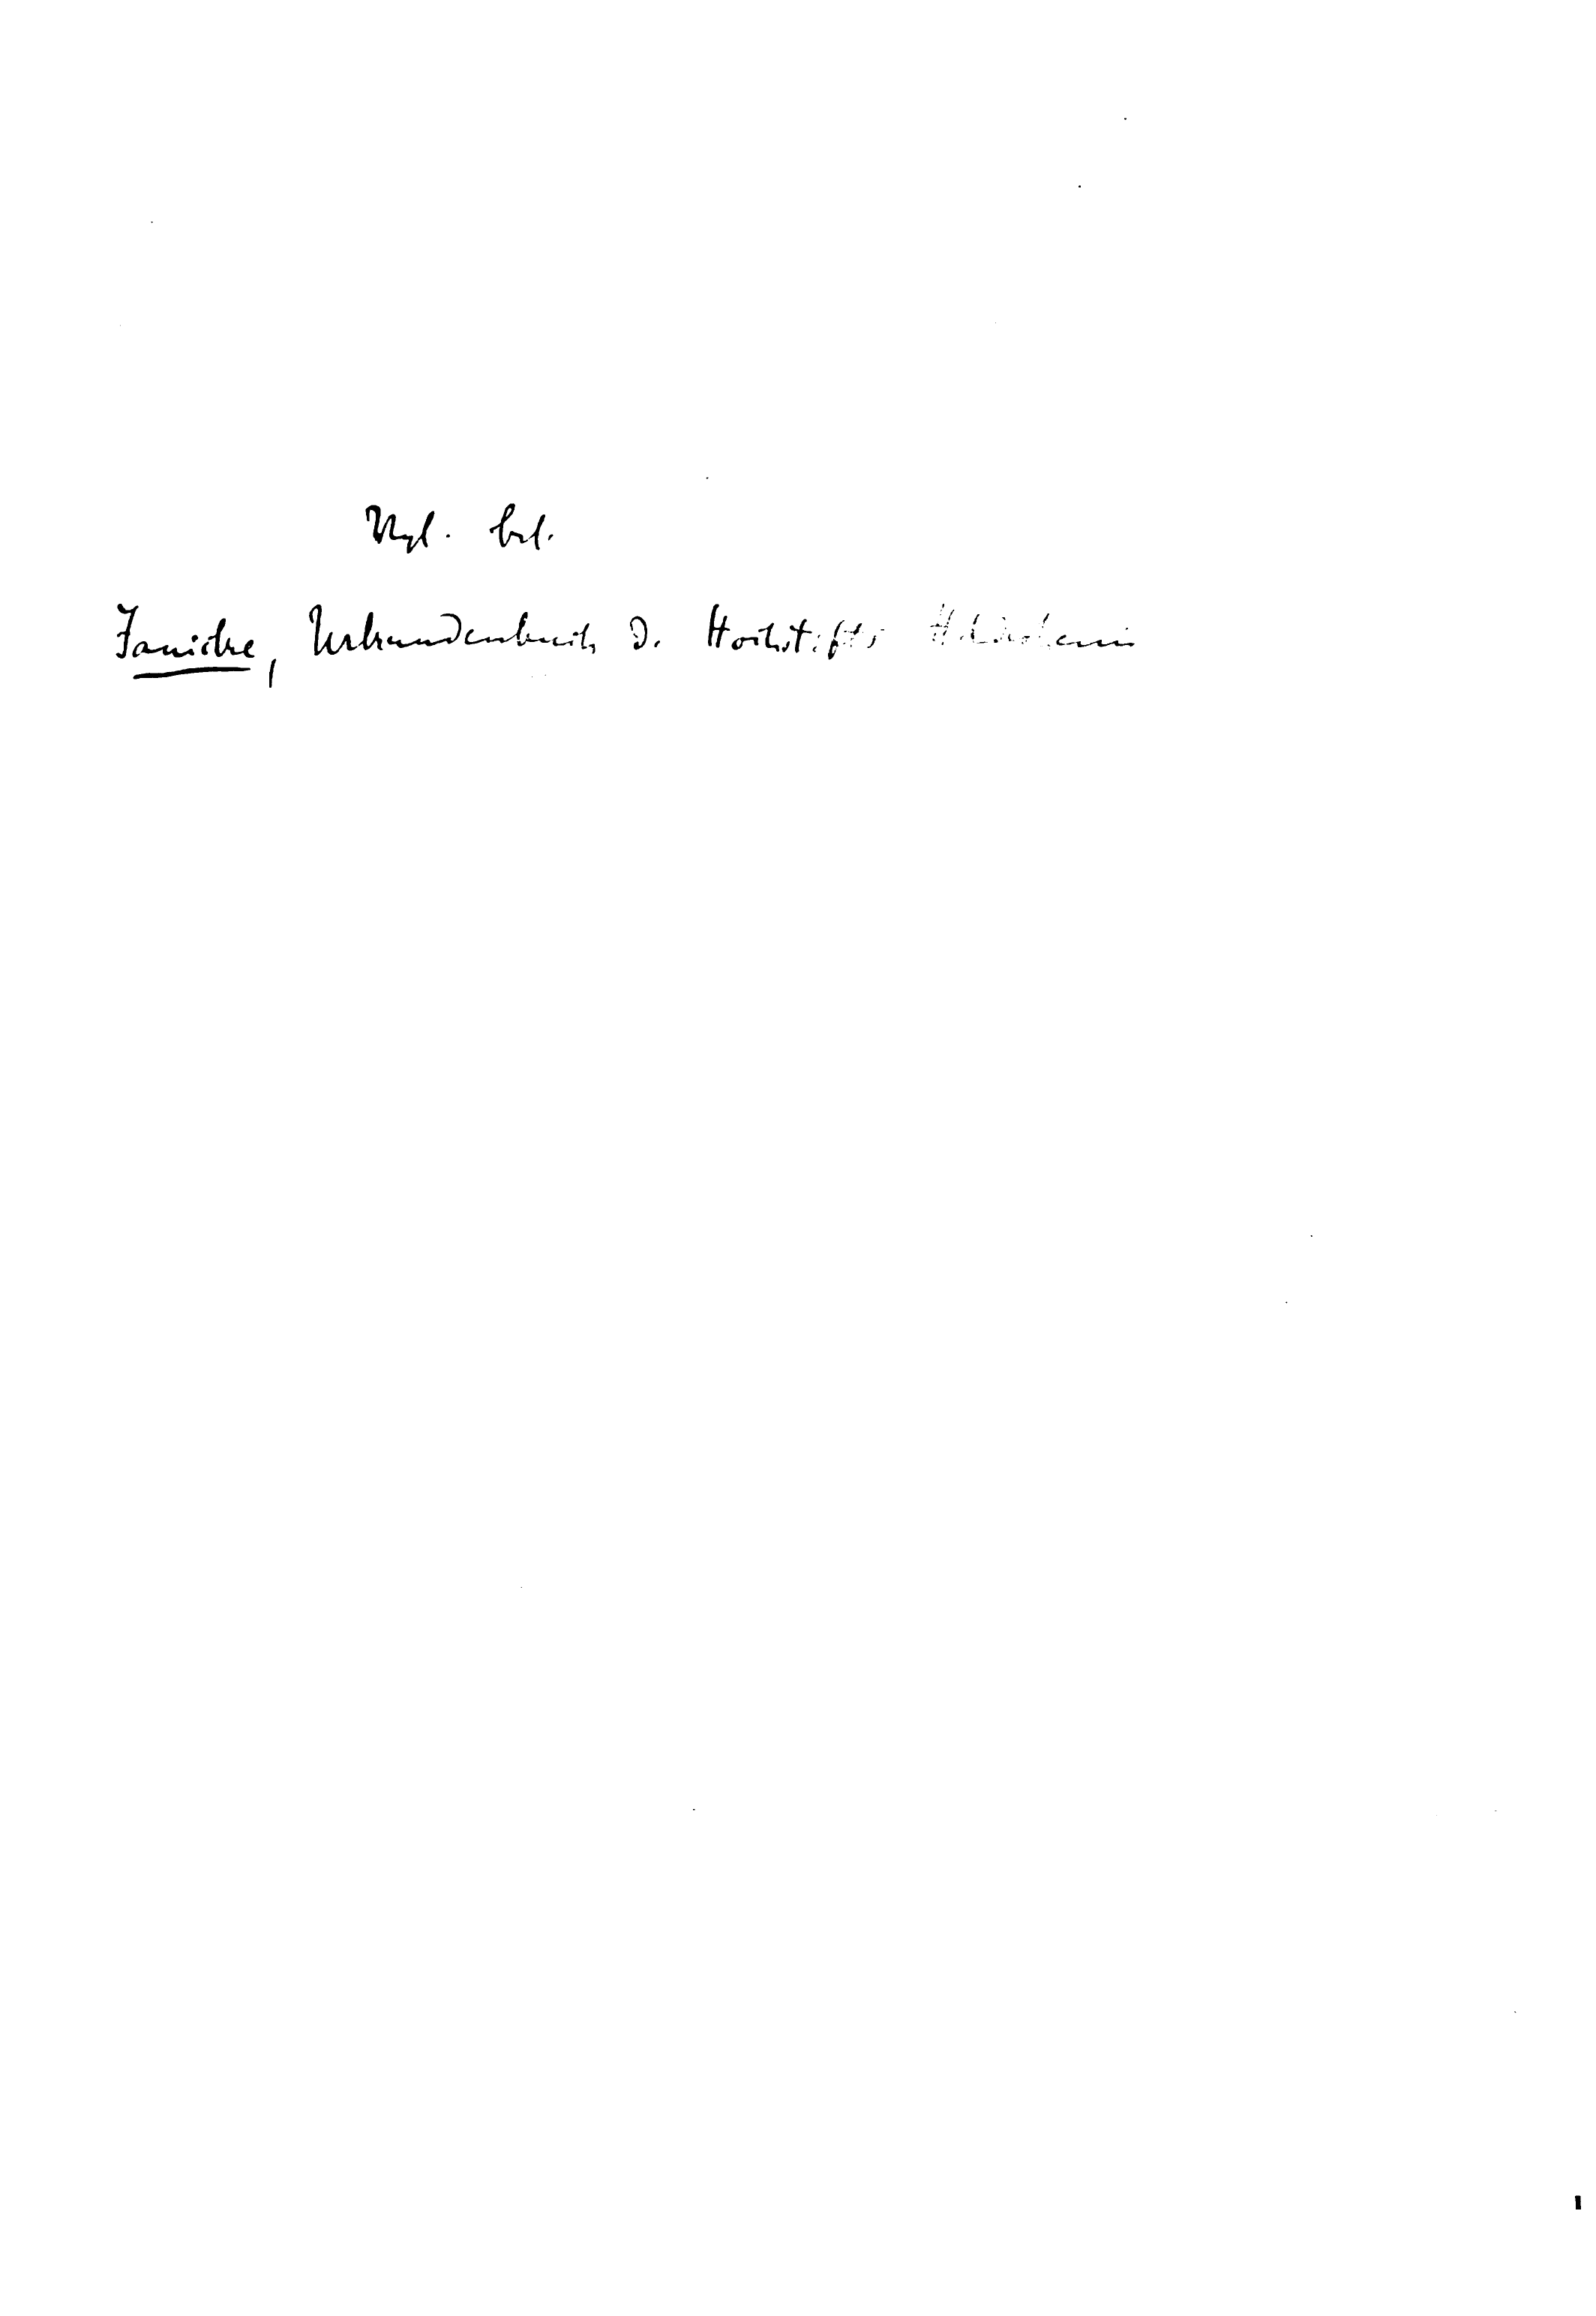 Vgl. bes.
Janicke, Urkundenbuch d. Hochstiftes Hildesheim